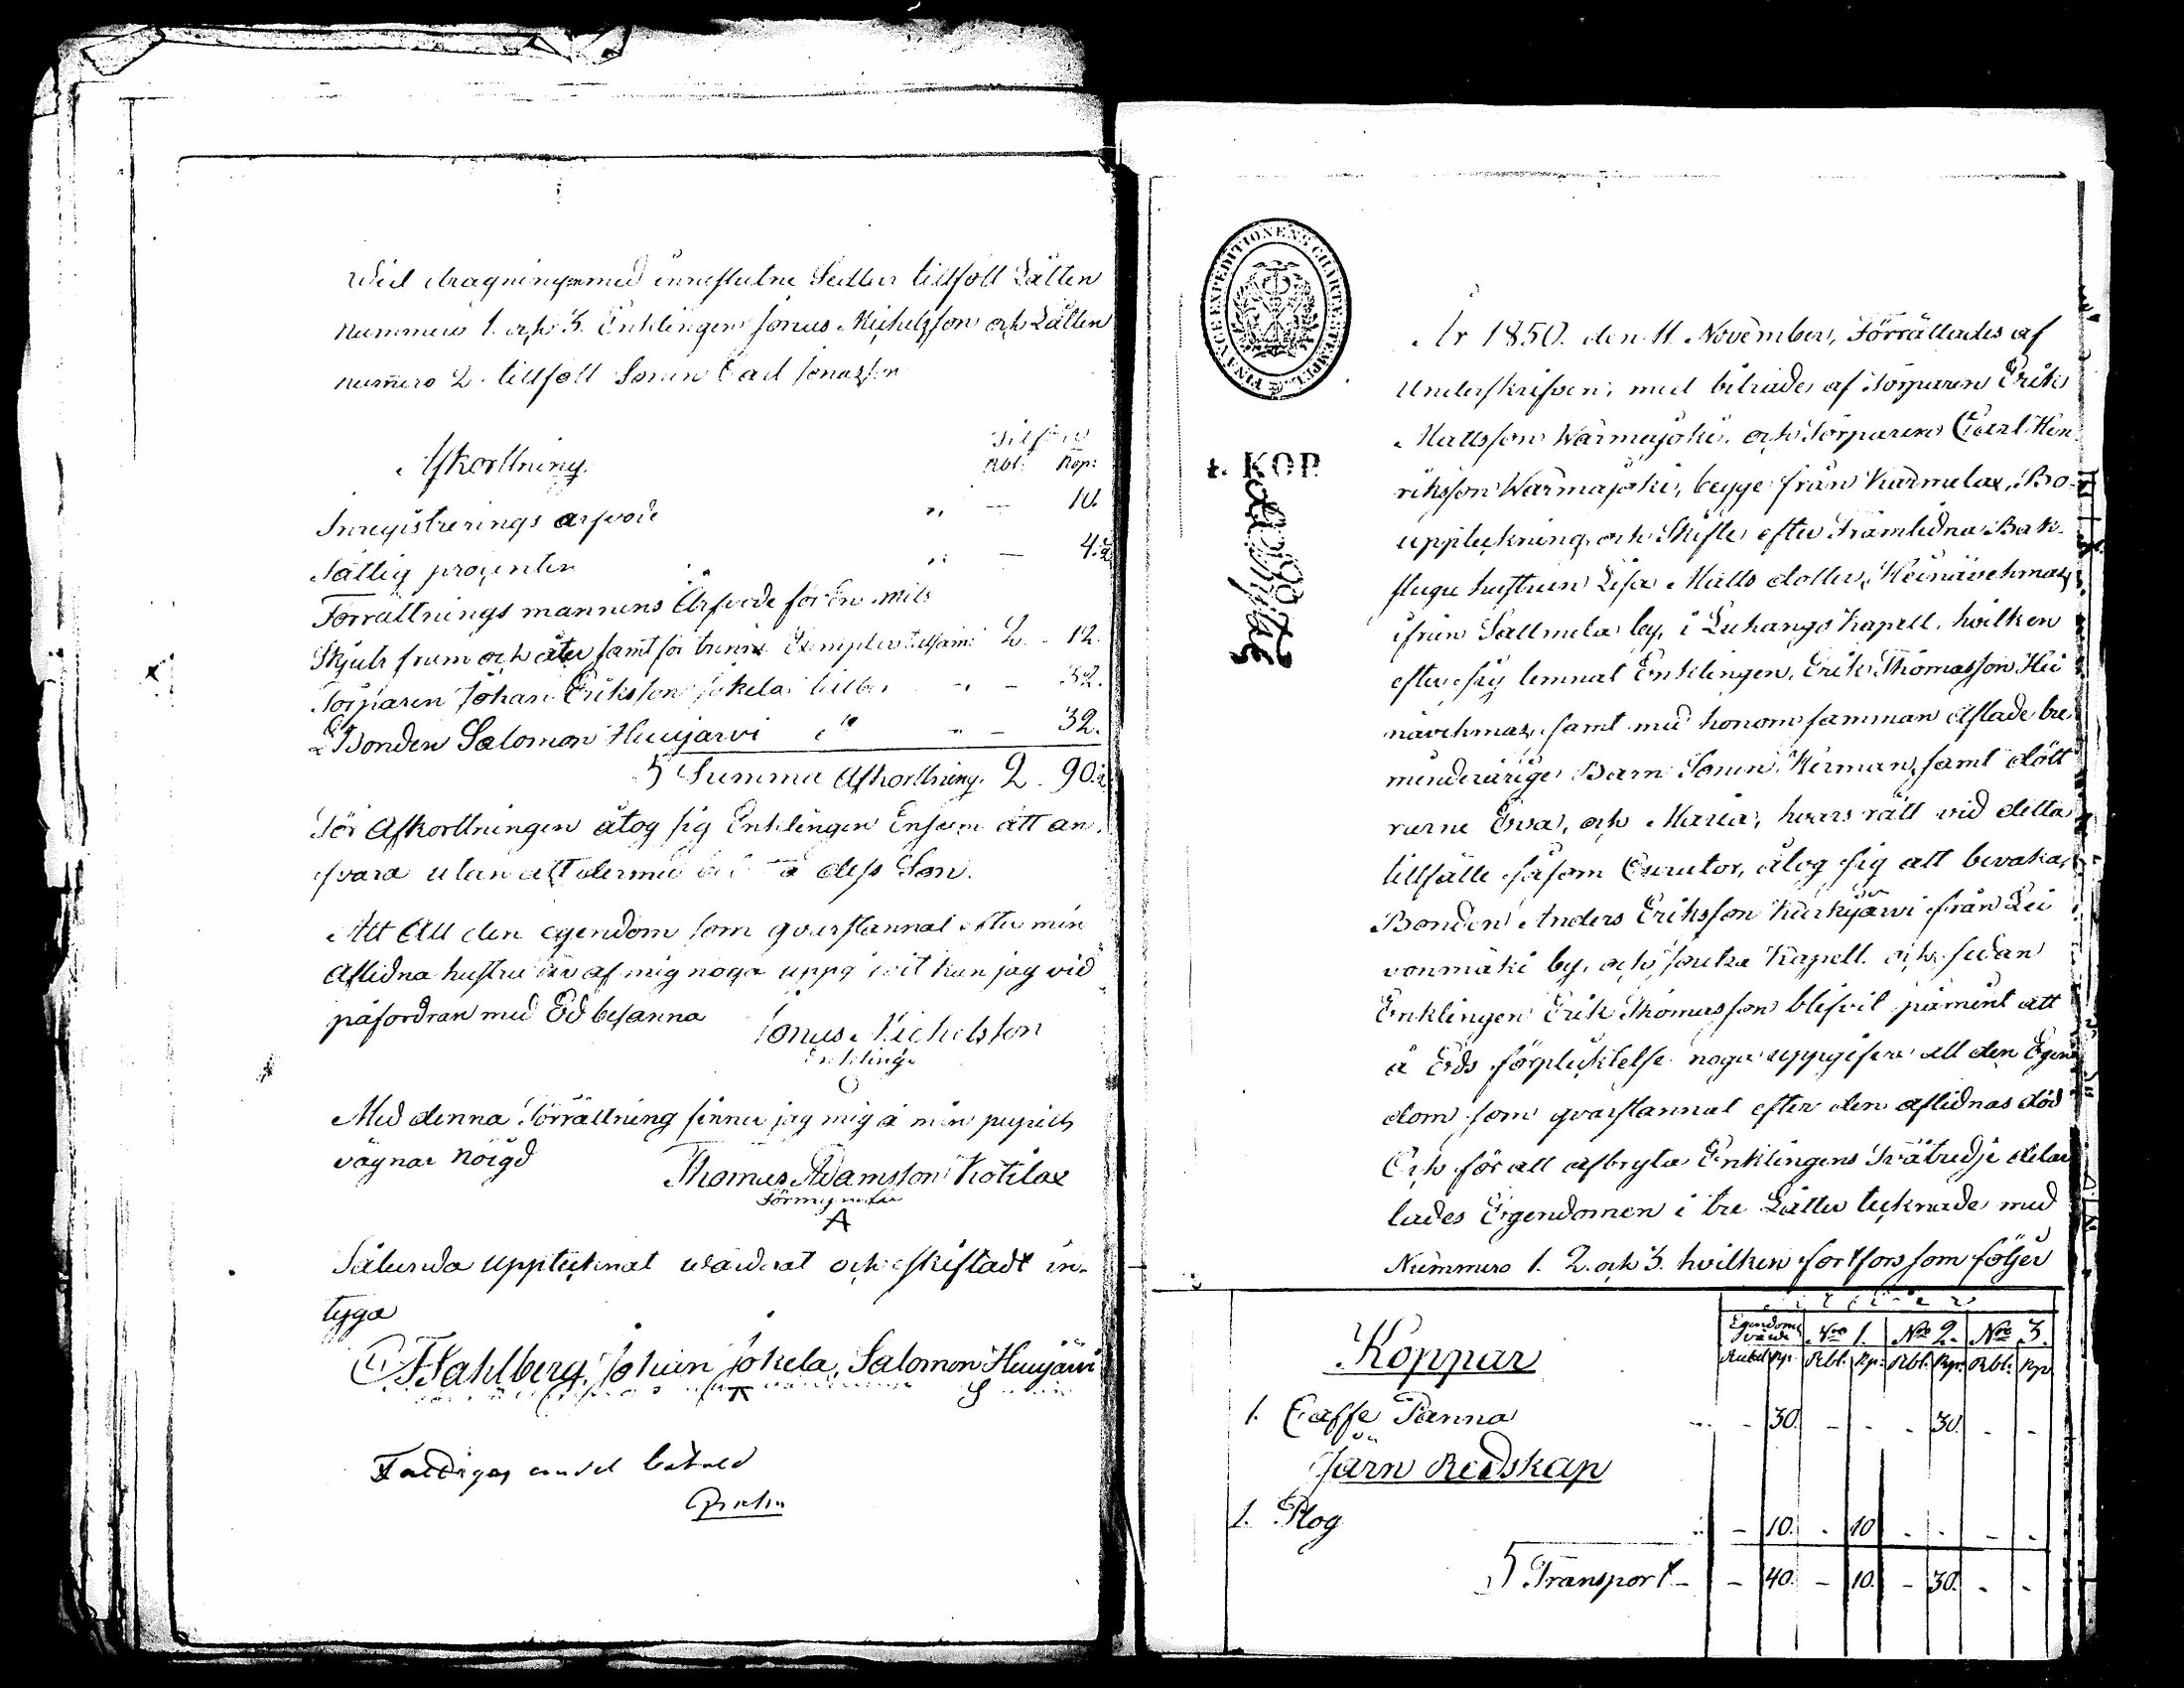 Wid dragningen med inneslutne Sedlar tillföll Lotten
nummero 1. och 3. Enklingen Jonas Michelsson och Lotten
nummero 2. tillföll Sonen Carl Jonasson
Afkorttning.
Silfver
Rbl: Kop:
Inregistrerings arfvode " — 10.
Fattig procenten " — 4.½
Forrattnings mannens Arfvode för En mils
Skjuts fram och åter samt för trenne Exemplar tillsam: 2. - 12.
Torparen Johan Eriksson Jokela " - 32.
Bonden Salomon Huujarvi " " - 32.
Summa Afkorttning. 2. 90.½
För Afkorttningen åtog sig Enklingen Ensam att an-
svara utan att dermed dess Son.
Att All den egendom som qvarstannat efter min
Aflidna hustru är af mig noga uppgifvit kan jag vid
påfordran med Ed besanna Jonas Michelsson
Enkling
Med denna Förrättning finner jag mig å min pupills
vägnar nöigd Thomas Adamsson Kotilax
Förmyndare
A
Sålunda upptecknat wärderat och skiftadt in-
tyga
Fahlberg, Johan Jokela, Salomon Huujärvi
Fattigas andel betald
FINANCE EXPEDITIONENS CHARTÆ STEMPEL
KOP.
År 1850. den 11 November, Förrättades af
Underskrifven, med biträde af Torparen Erik
Mattsson Warmajoki, och Torparen Carl Hen-
riksson Warmajoki, begge från Karmelax, Bo-
uppteckning, och Skifte efter Framlidna Bak-
stugu hustrun Lisa Matts dotter, Heinävehmas,
ifrån Tallmela by, i Luhango Kapell. hvilken
efter sig lemnat Enklingen, Erik Thomasson Hei
nävehmas, samt med honom samman Aflade tre
minderårige Barn Sonen Herman, samt dött
rarne Ewa, och Maria, hvars rätt vid detta
tillfälle såsom Curator, åtog sig att bevaka,
Bonden Anders Eriksson Kurkijärvi från Lei
vonmäki by, och Joutsa Kapell. och sedan
Enklingen Erik Thomasson blifvit påmint att
å Eds förplicktelse noga uppgifva all den Egen
dom som qvarstannat efter den aflidnas död
Och för att afbryta Enklingens Tvåtredje delar
lades Egendomen i tre Lotter tecknade med
Nummero 1. 2. och 3. hvilken fortfors som följer
Egendoms värde Nro 1. Nro 2. Nro 3.
Rubel Kp: Rbl: Kp: Rbl: Kp: Rbl: Kp
Koppar
1. Caffe Panna - 30. - - - 30. - -
Järn Redskap
1. Plog - 10. - 10 - - - -
Transport - - 40. - 10. - 30. - -